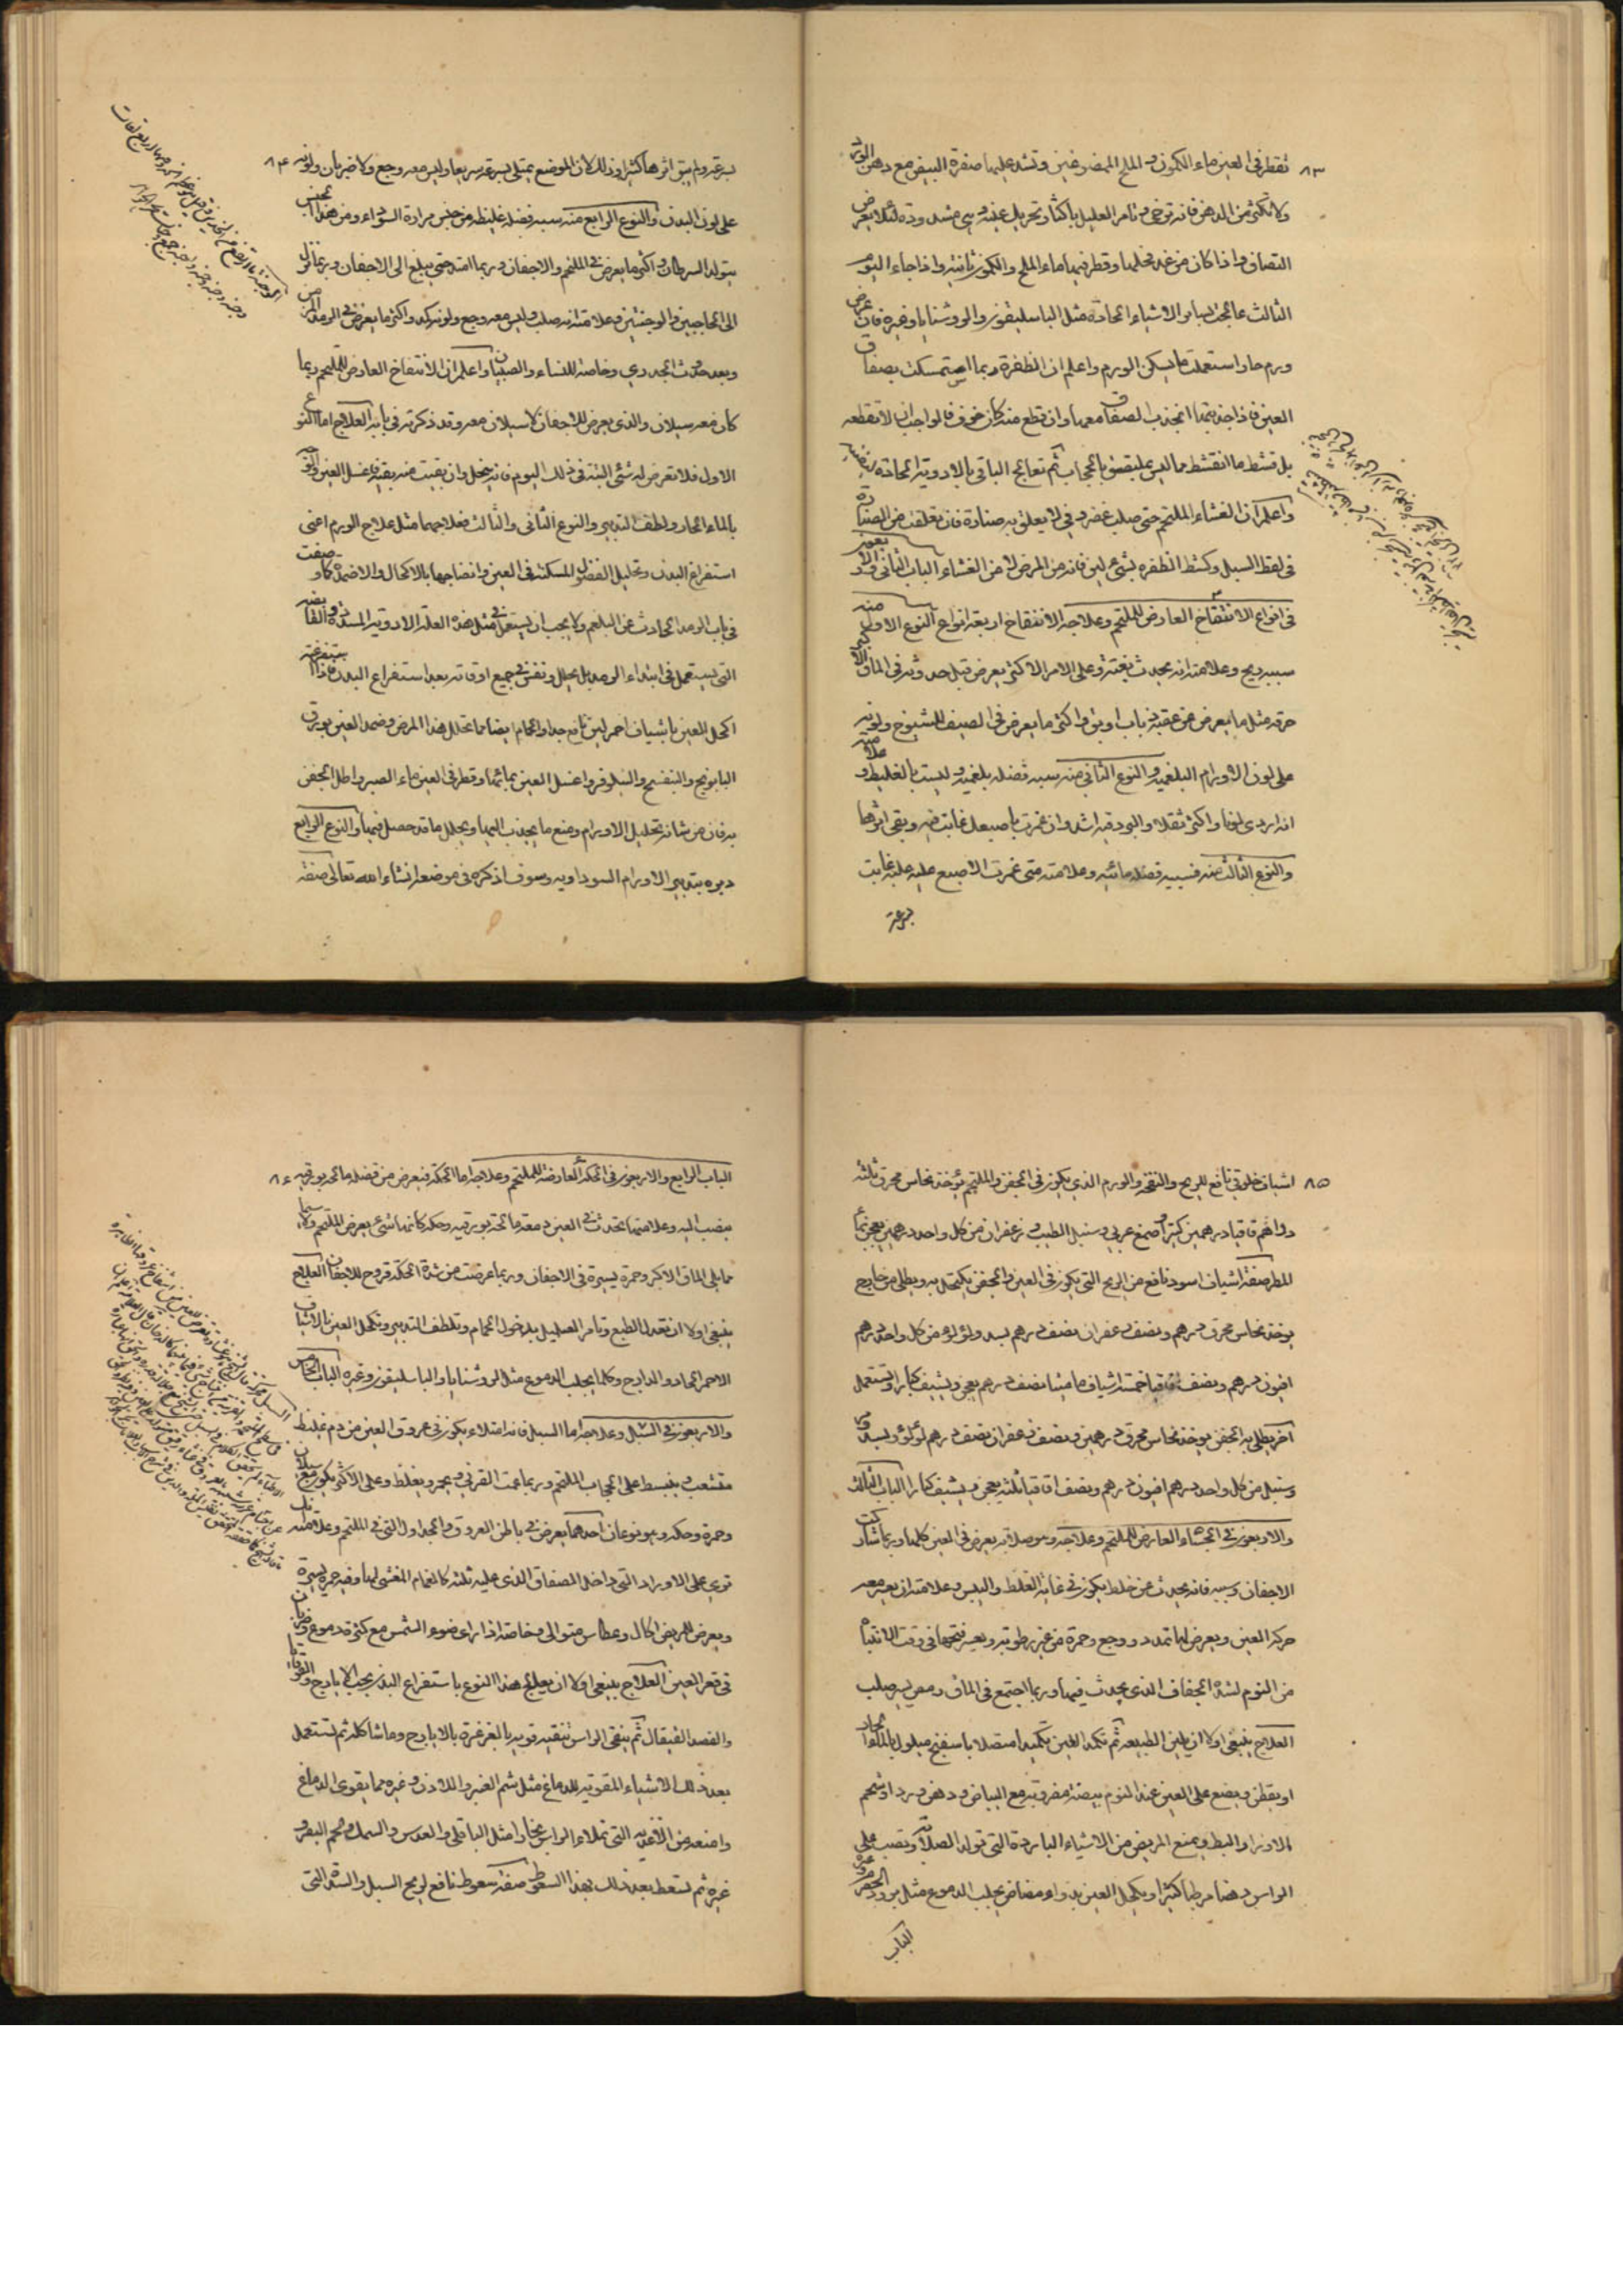 ٨٣
تقطر فى العين ماء الكمون و الملح الممضوغين وتشد عليها صفرة البيض مع دهن الورد
ولا تكثر من الدهن فانه ترخى وتامر العليل باكثار تحريك عينه وهى مشدودة لئلا يعرض
التصاق واذا كان من غد فحلها وقطر فيها ماء الملح والكمون ثانية واذا جاء اليوم
الثالث عالجت بساير الاشياء الحادة مثل الباسليقون والروشنايا وغيره فان عرض
ورم حار استعملت ما يسكن الورم واعلم ان الظفرة ربما استمسكت بصفاق
العين فاذا جذبتها انجذب الصفاق معها وان قطع منه كان خوف فالواجب ان لا تقطعه
بل تقشط ما انقشط مما ليس بملتصق بالحجاب ثم تعالج الباقى بالادوية الحادة
واعلم ان الغشاء الملتحم حتى صلب غضروفى لا يعلق به صنارة فان تعلقت من الصنارة
فى لقط السبل وكشط الظفره بشئ لين فانه من المرض لا من الغشاء الباب الثانى والاربعون
فى انواع الانتفاخ العارض للملتحم وعلاجه الانتفاخ اربعة انواع النوع الاول منه
سببه ريح وعلامته انه يحدث بغتة وعلى الامر الاكثر يعرض قبل حدوثه فى الماق الاكبر
حرقه مثل ما يعرض من عضة ذباب او بق واكثر ما يعرض فى الصيف للشيوخ ولونه
على لون الاورام البلغمية والنوع الثانى منه سببه فضله بلغمية وليست بالغليظ وعلامته
انه اردى لونا واكثر ثقلا والبرودة فيه اشد وان غمزت باصبعك غابت فيه وبقى اثرها
والنوع الثالث منه فسببه فضله مائيه وعلامته متى غمزت الاصبع عليه غابت
بسرعة
٨٤
بسرعة ولم يبق اثرها كثيرا وذلك لان الموضع يمتلى بسرعة سريعا وليس معه وجع ولا ضربان ولونه
على لون البدن والنوع الرابع منه سببه فضلة غليظه من جنس مرارة السوداء ومن هذا الجنس
يتولد السرطان واكثر ما يعرض فى الملتحم والاجفان وربما امتد حتى يبلغ الى الاجفان وربما نزل
الى الحاجبين والوجنتين وعلامته انه صلب وليس معه وجع ولونه كمد واكثر ما يعرض فى الرمد المزمن
وبعد حدوث الجدرى وخاصة للنساء والصبيان واعلم ان الانتفاخ العارض للملتحم ربما
كان معه سيلان والذى يعرض للاجفان لا سيلان معه وقد ذكرته فى بابه العلاج اما النوع
الاول فلا تعرض له بشئ البتة فى ذلك اليوم فانه ينحل وان بقيت منه بقية فاغسل العين والوجه
بالماء الحار ولطف التدبير والنوع الثانى والثالث فعلاجهما مثل علاج الورم اعنى
استفراغ البدن وتحليل الفضول المسكنة فى العين وانضاجها بالاكحال والاضمدة كما وصفت
فى باب الرمد الحادث عن البلغم ولا يجب ان يستعمل فى مثل هذه العلة الادوية المسددة والقابضه
التى يستعمل فى ابتداء الرمد بل يحلل وتفش فى جميع اوقاته بعد استفراغ البدن فاذا استفرغته
اكحل العين باشياف احمر لين نافع جدا والحمام ايضا مما تحلل هذا المرض وضمد العين بورق
البابونج والبنفسج والنيلوفر واغسل العين بمائها وقطر فى العين ماء الصبر واطل الجفن
به فان من شانه تحليل الاورام ومنع ما يجذب اليها ويحلل ما قد حصل فيها والنوع الرابع
دبره بتدبير الاورام السوداويه وسوف اذكره فى موضعه انشاء الله تعالى صفة
٨٥
اشياف خلوقى نافع للريح والنفخه والورم الذى يكون فى الجفن والملتحم يؤخذ نحاس محرق ثلثة
دراهم قاقيا درهمين كثيرا وصمغ عربى وسنبل الطيب وزعفران من كل واحد درهمين يعجن بماء
المطر صفة اشياف اسود نافع من الريح التى يكون فى العين والجفن يكتحل به ويطلى من خارج
يوخذ نحاس محرق درهم ونصف زعفران نصف درهم بسد ولؤلؤ من كل واحد درهم
افيون درهم ونصف قاقيا خمسة اشياف ماميثا نصف درهم يعجن ويشيف كبارا وتستعمل
آخر يطلى به الجفن يوخذ نحاس محرق درهمين ونصف زعفران نصف درهم لؤلؤ وبسد
وسنبل من كل واحد درهم افيون درهم ونصف اقاقيا ثلثه يعجن ويشيف كبارا الباب الثالث
والاربعون فى الجساء العارض للملتحم وعلاجه وهو صلابة يعرض فى العين كلها وربما شاركت
الاجفان وسببه فانه يحدث عن خلط يكون فى غاية الغلظ واليبس وعلامته ان يعسر معه
حركة العين ويعرض لها تمدد ووجع وحمرة من غير رطوبة ويعسر فتحها فى وقت الانتباه
من النوم لشدة الجفاف الذى يحدث فيها وربما اجتمع فى الماق رمص يسير صلب
العلاج ينبغى اولا ان يلين الطبيعه ثم تكمد العين تكميدا متصلا باسفنج مبلول بالماء الحار
او بقطن ويضع على العين عند النوم بيضة مضروبة مع البياض ودهن ورد او شحم
الاوز او البط ويمنع المريض من الاشياء الباردة التى تولد الصلابة وتصب على
الراس دهنا مرطبا كثيرا ويكحل العين بدواء مضاض يجلب الدموع مثل برود الحصرم وغيره
الباب
الباب الرابع والاربعون فى الحكة العارضة للملتحم وعلاجه اما الحكة فيعرض من فضلة مالحه بورقيه
منصب اليه وعلامتها تحدث فى العين دمعة مالحة بورقيه وحكه كانها شئ يعرض للملتحم ولا سيما
مما يلى الماق الاكبر وحمرة يسيرة فى الاجفان وربما عرضت من شدة الحكة قروح للاجفان العلاج
ينبغى اولا ان تعدل الطبع وتامر العليل بدخول الحمام وتلطف التدبير وتكحل العين بالاشياف
الاحمر الحاد والدارج وكلما يجلب الدموع مثل الروشنايا والباسليقون وغيره الباب الخامس
والاربعون فى السبل وعلاجه اما السبل فانه امتلاء يكون فى عروق العين من دم غليظ
متشعب ينبسط على الحجاب الملتحم وربما عمت القرنى ويحمر ويغلظ وعلى الاكثر يكون مع سيلان
وحمرة وحكه وهو نوعان احدهما يعرض فى باطن العروق والجداول التى فى الملتحم وعلامته
ترى على الاوراد التى داخل الصفاق الذى عليه ثلثه كالغمام المغشى لها وفيه حمرة يسيرة
ويعرض للمريض اكال وعطاس متوالى وخاصة اذا راى ضوء الشمس مع كثرة دموع وضربان
فى قعر العين العلاج ينبغى اولا ان يعالج هذا النوع باستفراغ البدن بحب الايارج والقوقايا
والفصد القيفال ثم ينقى الراس تنقيه قويه بالغرغرة بالايارج وما شاكله ثم تستعمل
بعد ذلك الاشياء المقويه للدماغ مثل شم العنبر واللادن وغيره مما يقوى الدماغ
وامنعه من الاغذيه التى تملاء الراس بخارا مثل الباقلى والعدس والسمك ولحم البقر و
غيره ثم تسعط بعد ذلك بهذا السعوط صفة سعوط نافع لريح السبل والسدة التى